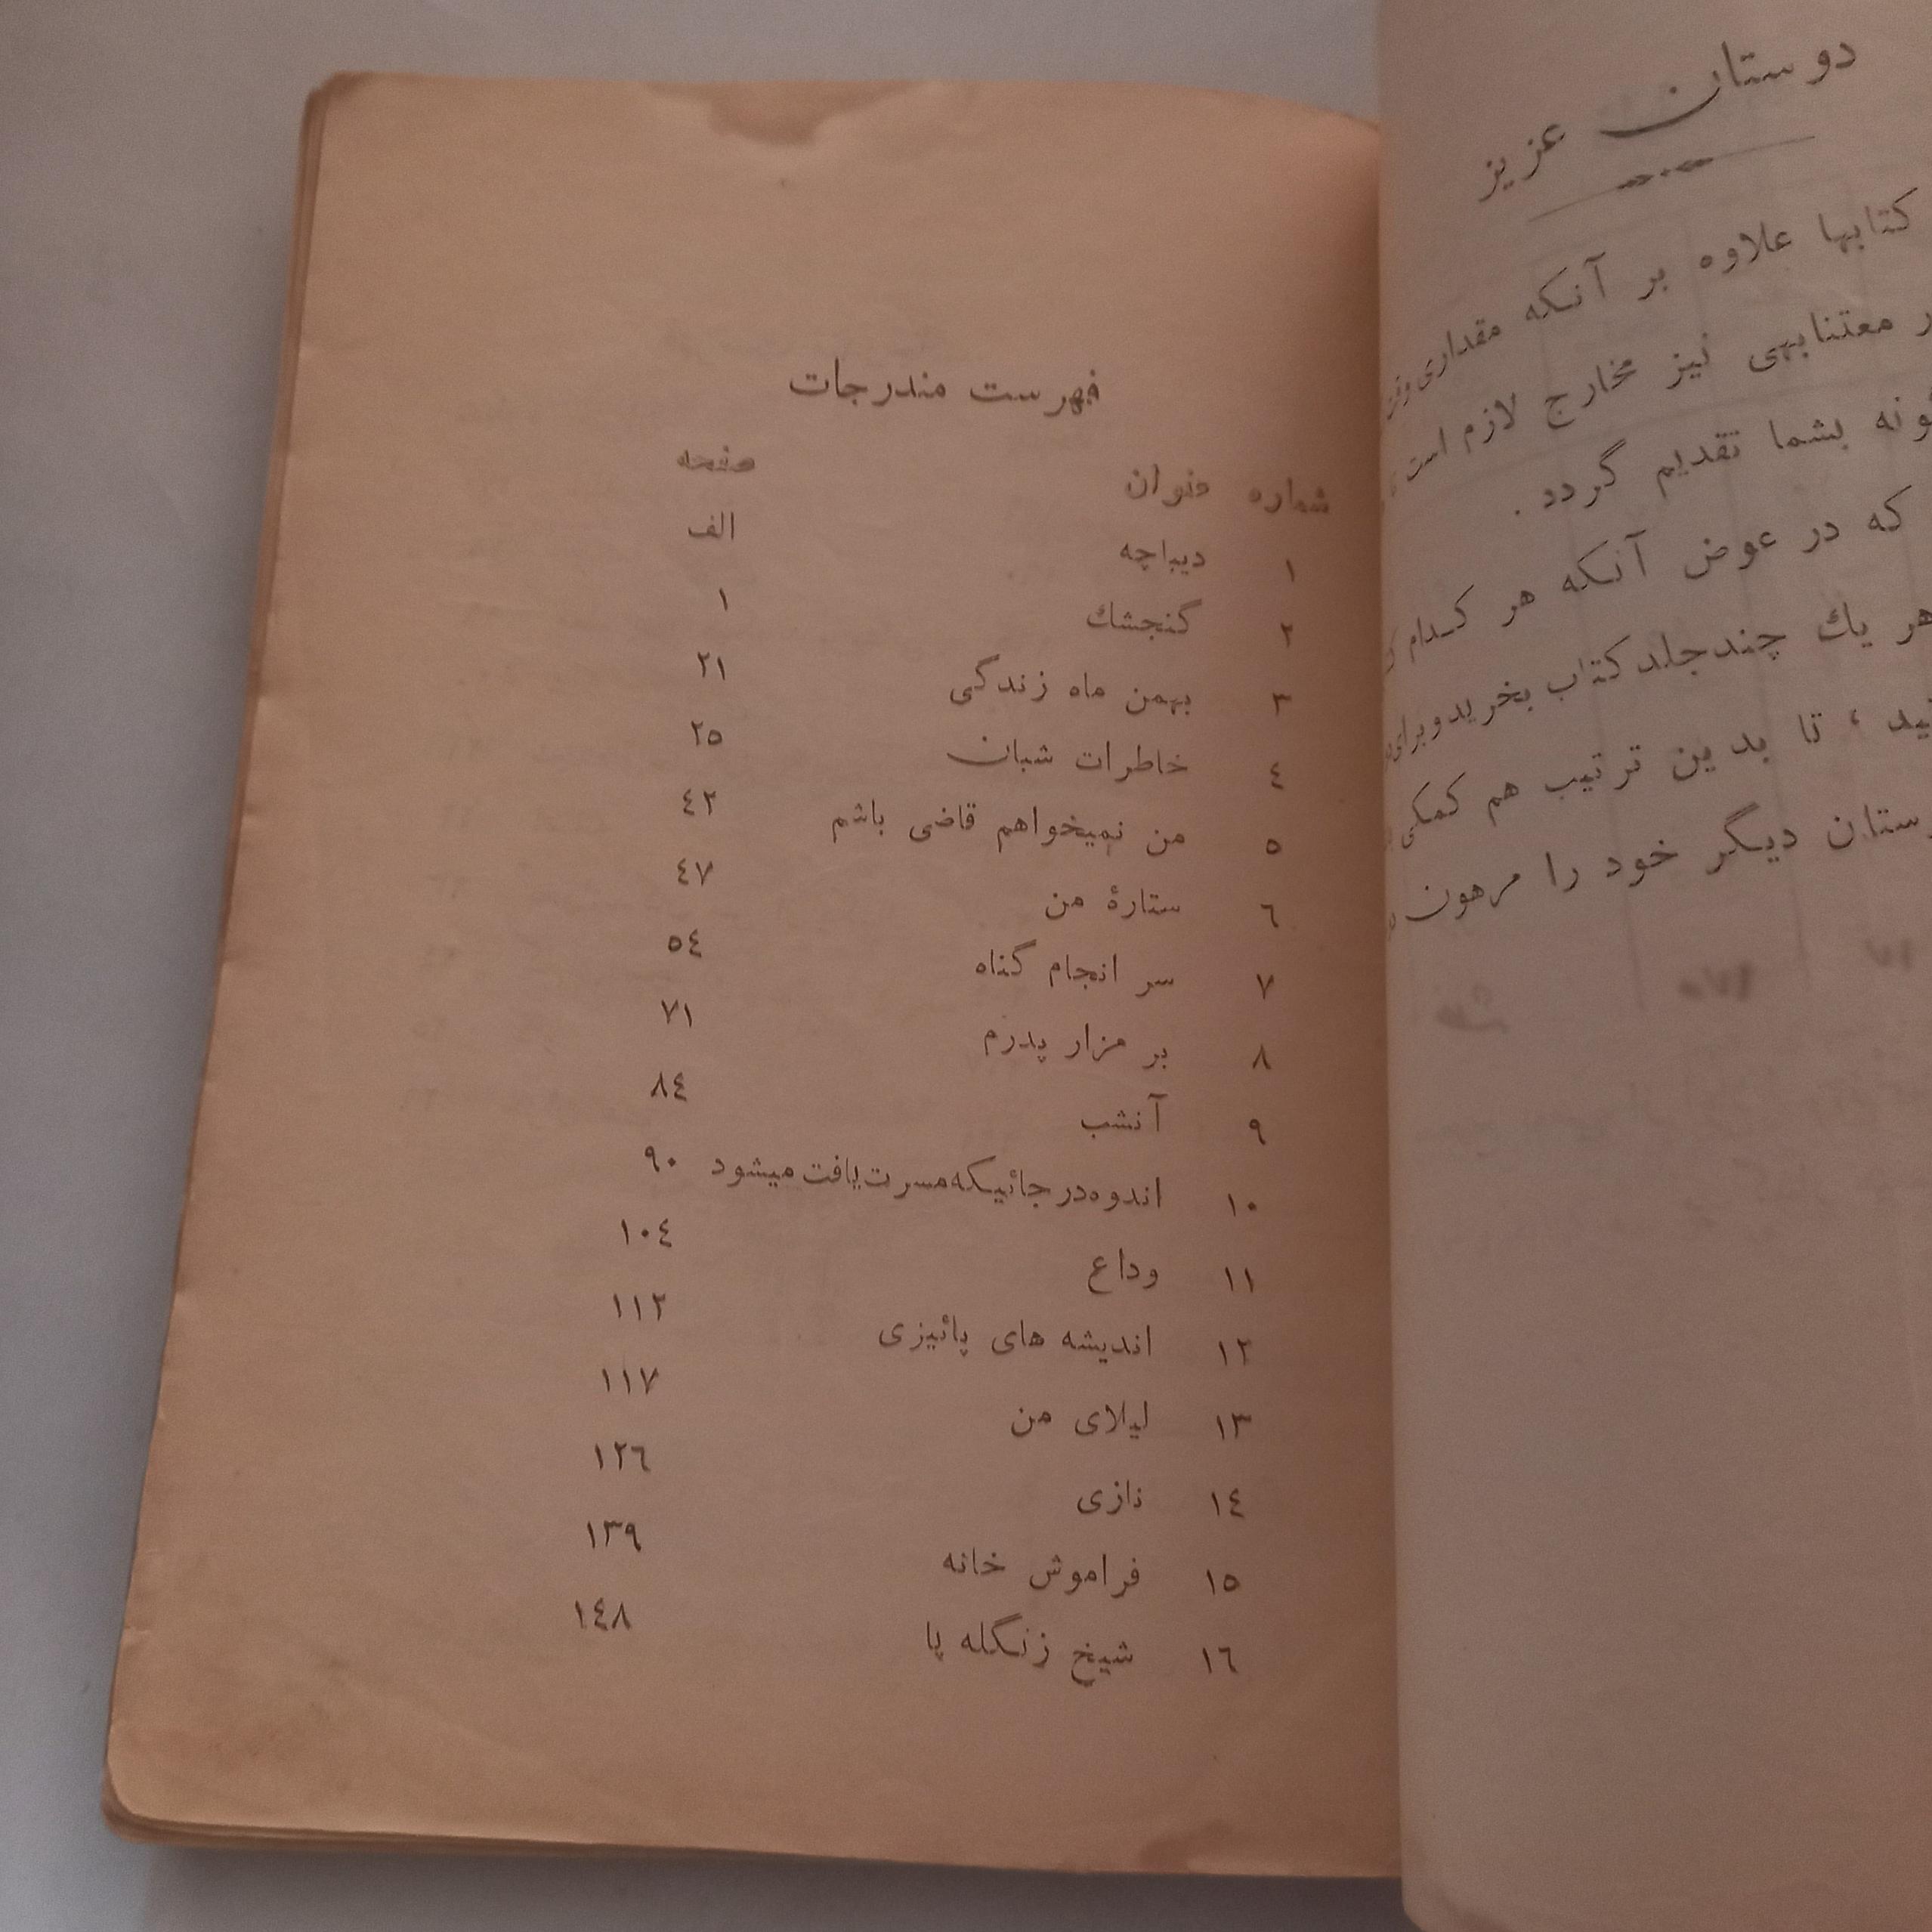 دوستان عزیز
کتابها علاوه بر آنکه مقداری
معتنابهی نیز مخارج لازم است
بشما تقدیم گردد .
که در عوض آنکه هر کدام
هر یك چند جلد کتاب بخرید و برای
تا بدین ترتیب هم کمکی
دیگر خود را مرهون
فهرست مندرجات
شماره عنوان صفحه
۱ دیباچه الف
۲ گنجشك ۱
۳ بهمن ماه زندگی ۲۱
٤ خاطرات شبان ۲٥
٥ من نمیخواهم قاضی باشم ٤۲
٦ ستارهٔ من ٤۷
۷ سر انجام گناه ٥٤
۸ بر مزار پدرم ۷۱
۹ آنشب ۸٤
۱۰ اندوه در جائیکه مسرت یافت میشود ۹۰
۱۱ وداع ۱۰٤
۱۲ اندیشه های پائیزی ۱۱۲
۱۳ لیلای من ۱۱۷
۱٤ نازی ۱۲٦
۱٥ فراموش خانه ۱۳۹
۱٦ شیخ زنگله پا ۱٤۸